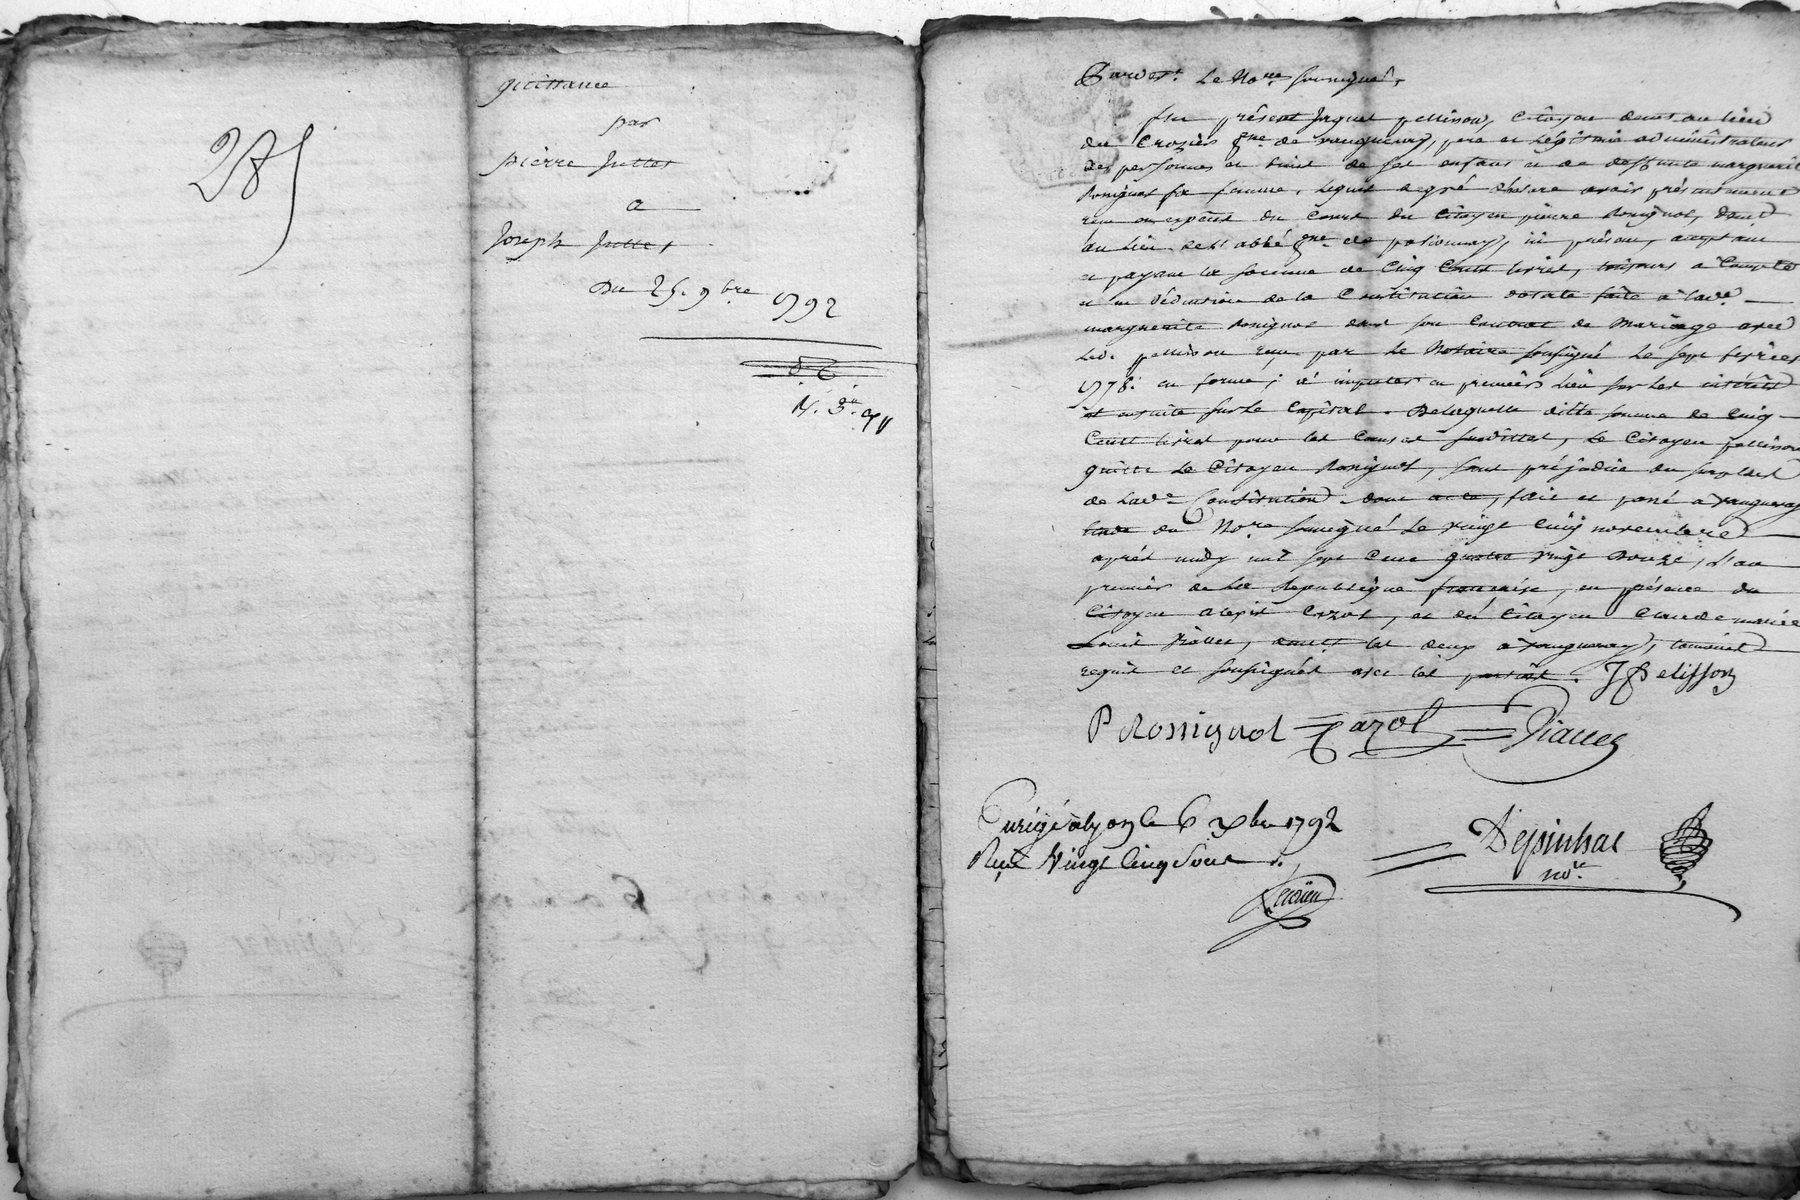 285
quittance
par
pierre Juttet
a
Joseph Juttet
Du 25. 9bre 1792
Pardevt. Le Nore soussigné,
fut présent Jaques pellisson, citoyen demt. au lieu
du Crozier psse. de vaugneray, pere et légitime administrateur
des personnes et biens de ses enfans et de deffunte marguerite
Rossignol sa femme, lequel de gré declare avoir présentement
reçu en espèces du cours du citoyen pierre Rossignol, demt
au lieu de l'abbé psse. de polionnay, ici présent, acceptant
et payant la somme de Cinq Cents livres, toujours a Compte
et en déduction de la Constitution dotale faite à lade.
marguerite Rossignol dans son Contrat de Mariage avec
led. pellisson reçu par le Notaire soussigné le sept fevrier
1778. en forme; et imputer en premier lieu sur les intérêts
et ensuite sur le Capital. De laquelle ditte somme de Cinq
Cents livres pour les Causes susdittes, Le Citoyen pellisson
quitte Le Citoyen Rossignol, sans préjudice du surplus
de lade. Constitution. dont acte, fait et passé a vaugneray
étude du Nore soussigné Le vingt Cinq novembre
après midy mil sept Cent quatre vingt Douze, L'an
premier de la Republique française, en présence du
Citoyen alexis Cazot, et du Citoyen Claude marie
Louis , demts. les deux a vaugneray, temoins
requis et soussignés avec les parties. J Pelisson
P Rossignol Cazot
à lyon le 6 Xbre 1792
Reçu Vingt Cinq Sous
Despinhac
nore.